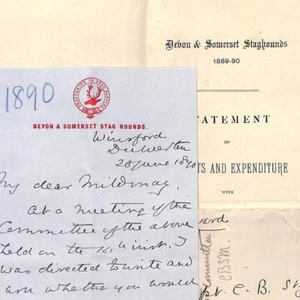 Devon & Somerset Staghounds
1889-90
STATEMENT
OF
TS AND EXPENDITURE
WITH
1890
DEVON & SOMERSET STAG HOUNDS.
Winsford
Dulverton
28 June 1890
My dear Mildmay.
At a meeting of the
Committee of the above
held on the inst. I
was directed to write and
ask whether you would
ard
Committee
pt. C. B. S